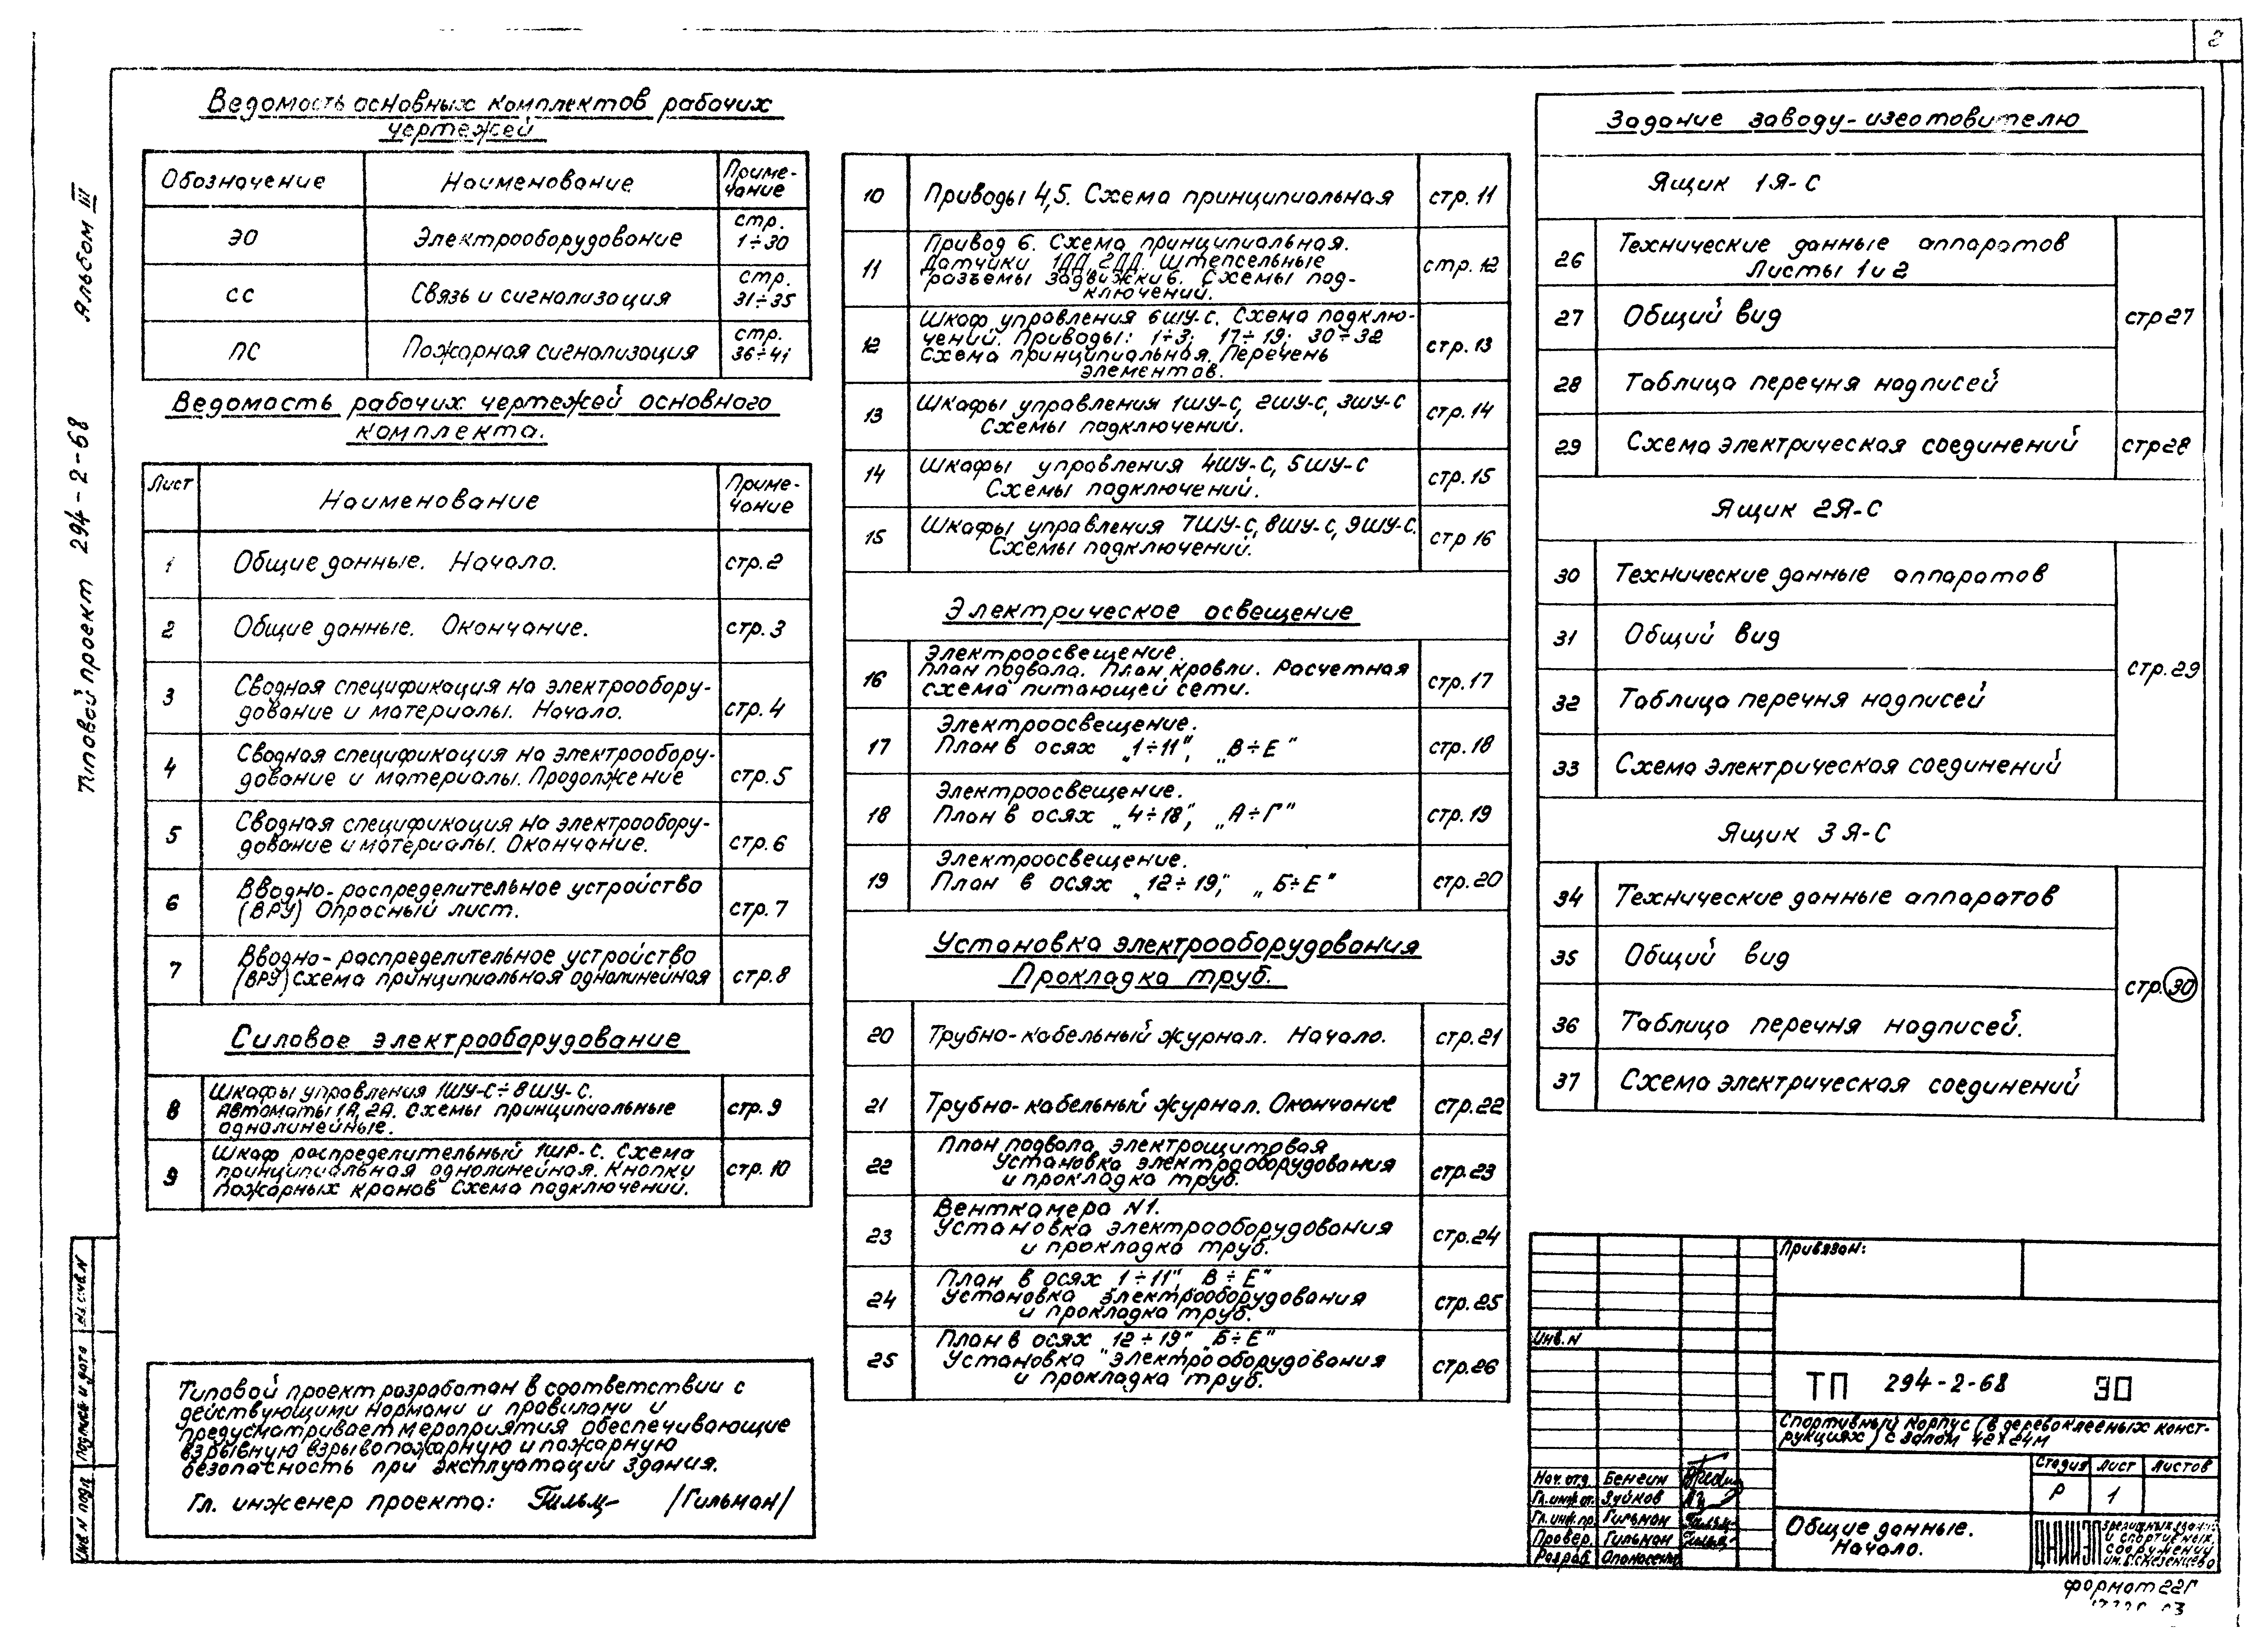 2
Альбом III
Типовой проект 294-2-68
Ведомость основных комплектов рабочих
чертежей
Обозначение
Наименование
Приме-
чание
ЭО
Электрооборудование
стр.
1÷30
СС
Связь и сигнализация
стр.
31÷35
ПС
Пожарная сигнализация
стр.
36÷41
Ведомость рабочих чертежей основного
комплекта.
Лист
Наименование
Приме-
чание
1
Общие данные. Начало.
стр.2
2
Общие данные. Окончание.
стр.3
3
Сводная спецификация на электрообору-
дование и материалы. Начало.
стр.4
4
Сводная спецификация на электрообору-
дование и материалы. Продолжение
стр.5
5
Сводная спецификация на электрообору-
дование и материалы. Окончание.
стр.6
6
Вводно-распределительное устройство
(ВРУ) Опросный лист.
стр.7
7
Вводно-распределительное устройство
(ВРУ) Схема принципиальная однолинейная
стр.8
Силовое электрооборудование
8
Шкафы управления 1ШУ-С÷8ШУ-С.
Автоматы 1А, 2А. Схемы принципиальные
однолинейные.
стр.9
9
Шкаф распределительный 1ШР-С. Схема
принципиальная однолинейная. Кнопки
пожарных кранов Схема подключений.
стр.10
Типовой проект разработан в соответствии с
действующими нормами и правилами и
предусматривает мероприятия обеспечивающие
взрывную взрывопожарную и пожарную
безопасность при эксплуатации здания.
Гл. инженер проекта: /Гильман/
10
Приводы 4,5. Схема принципиальная
стр.11
11
Привод 6. Схема принципиальная.
Датчики 1ДД, 2ДД, штепсельные
разъемы задвижки 6. Схемы под-
ключений.
стр.12
12
Шкаф управления 6ШУ-С. Схема подклю-
чений. Приводы: 1÷3; 17÷19; 30÷32
Схема принципиальная. Перечень
элементов.
стр.13
13
Шкафы управления 1ШУ-С, 2ШУ-С, 3ШУ-С
Схемы подключений.
стр.14
14
Шкафы управления 4ШУ-С, 5ШУ-С
Схемы подключений.
стр.15
15
Шкафы управления 7ШУ-С, 8ШУ-С, 9ШУ-С.
Схемы подключений.
стр 16
Электрическое освещение
16
Электроосвещение.
План подвала. План кровли. Расчетная
схема питающей сети.
стр.17
17
Электроосвещение.
План в осях „1÷11", „В÷Е"
стр.18
18
Электроосвещение.
План в осях „4÷18", „А÷Г"
стр.19
19
Электроосвещение.
План в осях „12÷19", „Б÷Е"
стр.20
Установка электрооборудования
Прокладка труб.
20
Трубно-кабельный журнал. Начало.
стр.21
21
Трубно-кабельный журнал. Окончание
стр.22
22
План подвала, электрощитовая
Установка электрооборудования
и прокладка труб.
стр.23
23
Венткамера N1.
Установка электрооборудования
и прокладка труб.
стр.24
24
План в осях 1÷11", В÷Е"
Установка электрооборудования
и прокладка труб.
стр.25
25
План в осях 12÷19" „Б÷Е"
Установка электрооборудования
и прокладка труб.
стр.26
Задание заводу-изготовителю
Ящик 1Я-С
26
Технические данные аппаратов
Листы 1 и 2
27
Общий вид
стр27
28
Таблица перечня надписей
29
Схема электрическая соединений
стр28
Ящик 2Я-С
30
Технические данные аппаратов
31
Общий вид
стр.29
32
Таблица перечня надписей
33
Схема электрическая соединений
Ящик 3Я-С
34
Технические данные аппаратов
35
Общий вид
стр.30
36
Таблица перечня надписей.
37
Схема электрическая соединений
Привязан:
Инв.N
ТП 294-2-68 ЭО
Спортивный корпус (в деревоклееных конст-
рукциях) с залом 42х24м
Стадия
Лист
Листов
Р
1
Нач.отд. Бенгин
Гл.инж.от. Зуйков
Гл.инж.пр. Гильман
Провер. Гильман
Разраб.
Общие данные.
Начало.
ЦНИИЭП
зрелищных зданий
и спортивных
сооружений
им. Б.С.Мезенцева
Формат 22Г
Инв.N подл.
Подпись и дата